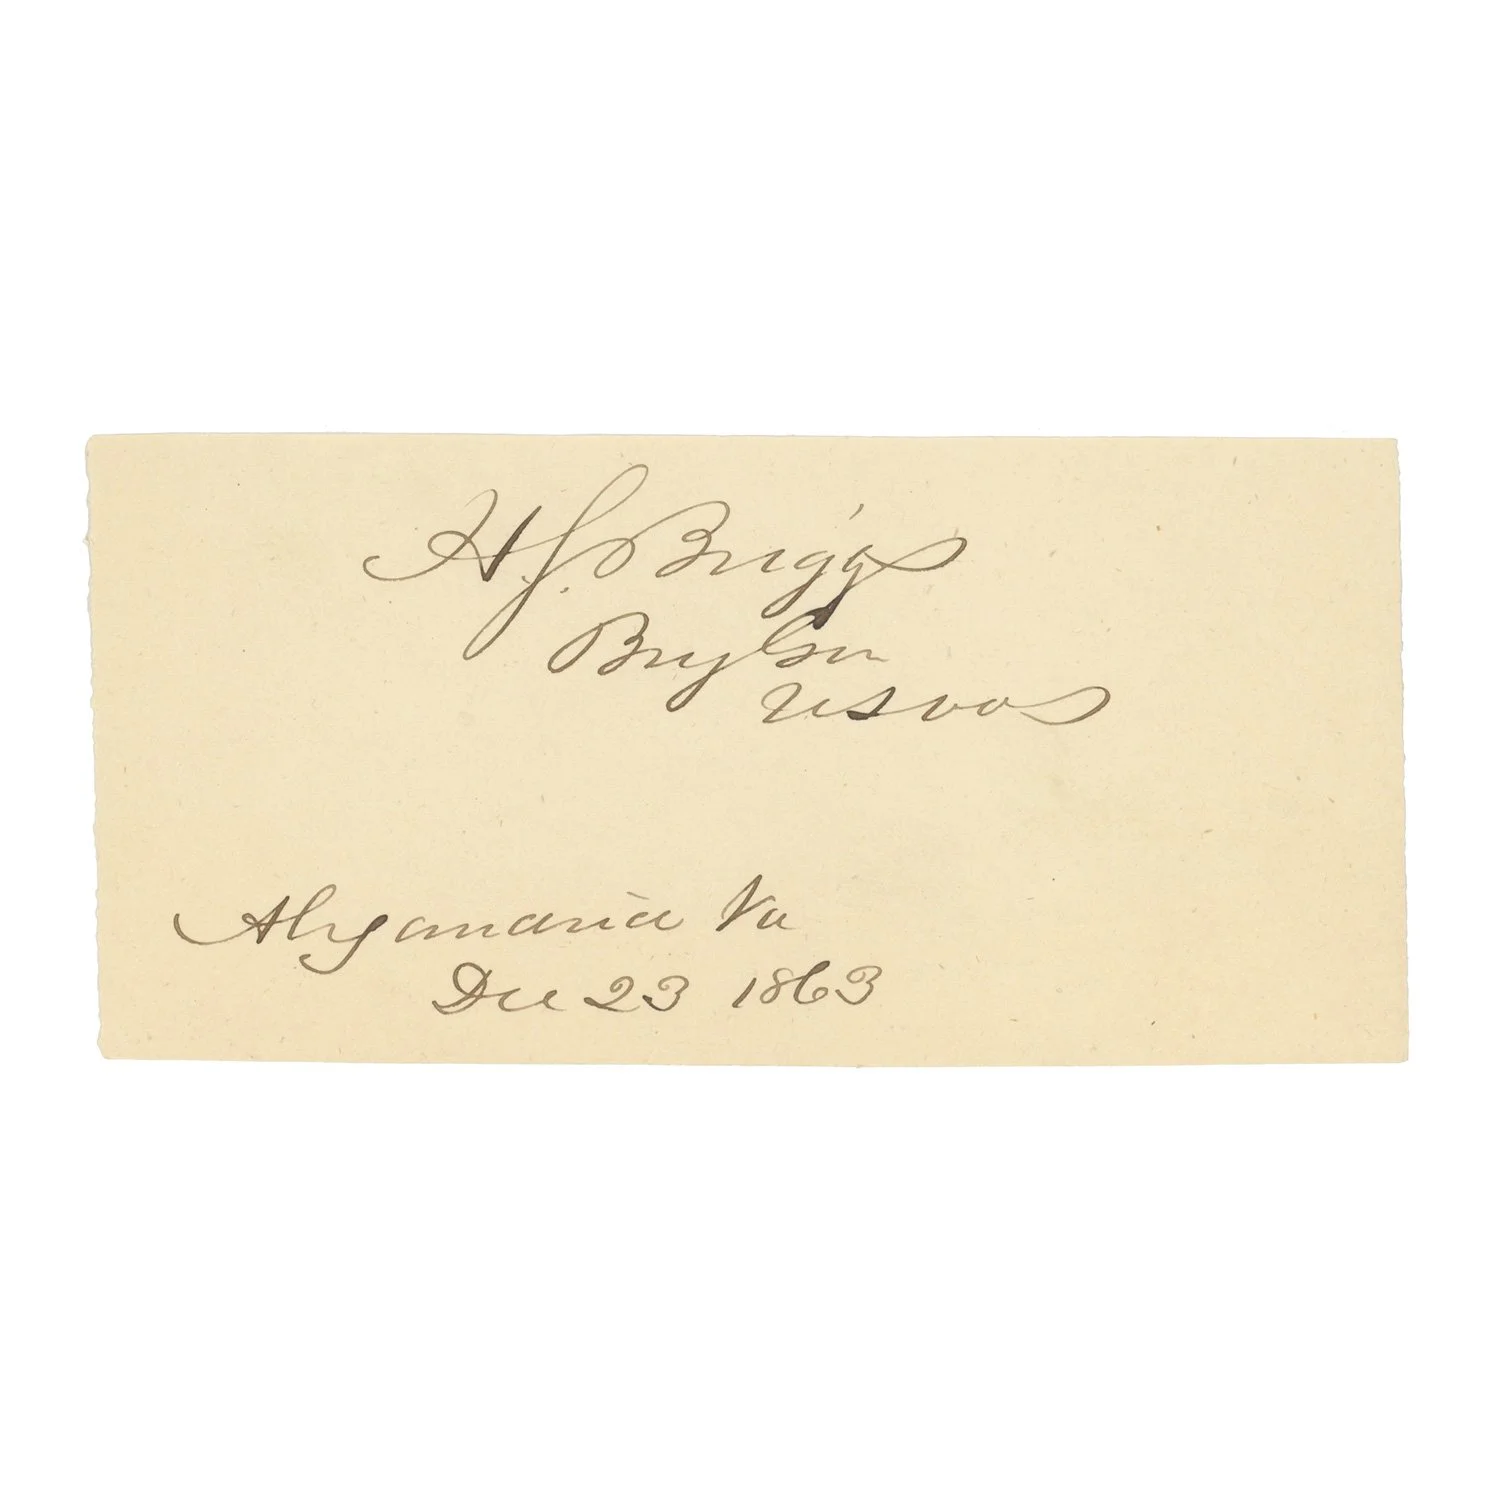 H. S. Briggs
Brig Gen
US Vols
Alexandria Va
Dec 23 1863